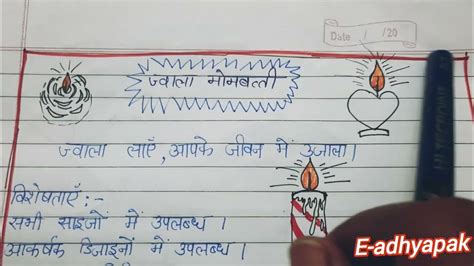 Date / /20
ज्वाला मोमबत्ती
ज्वाला लाएँ, आपके जीवन में उजाला।
विशेषताएँ :-
सभी साइजों में उपलब्ध ।
आकर्षक डिजाइनों में उपलब्ध ।
E-adhyapak